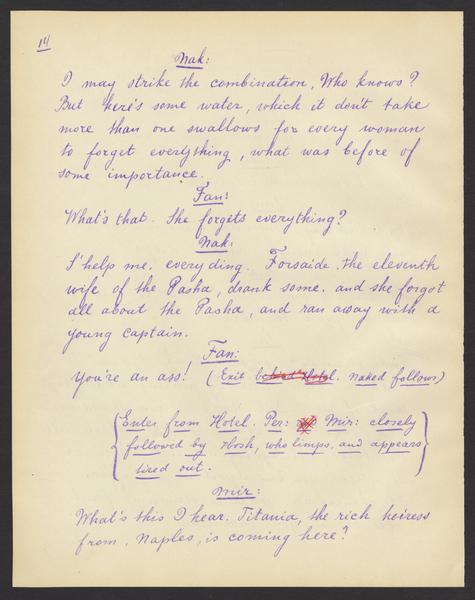 14
Nak:
I may strike the combination, Who knows?
But here's some water, which it don't take
more than one swallows for every woman
to forget everlything, what was before of
some importance.
Fan:
What's that. She forgets everything?
Nak:
S'help me. everyding. Forsaide, the eleventh
wife of the Pasha, drank some. and she forgot
all about the Pasha, and ran away with a
young captain.
Fan:
You're an ass! (Exit behind Hotel. Naked follows)
Enter from Hotel. Per: Mir: closely
followed by Hosh, who limps, and appears
tired out.
Mir:
What's this I hear. Titania, the rich heiress
from, Naples, is coming here?